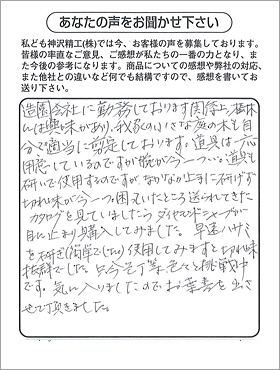 あなたの声をお聞かせ下さい
私ども神沢精工(株)では今、お客様の声を募集しております。
皆様の率直なご意見、ご感想が私たちの一番の力となり、ま
た今後の参考になります。商品についての感想や弊社の対応、
また他社との違いなど何でも結構ですので、感想を書いてお
送り下さい。
造園会社に勤務しております関係上、植木
には興味があり、我家の小さな庭の木も自
分で適当に剪定しております。道具は一応
用意しているのですが腕が今一つ…。道具も
研いで使用するのですがなかなか上手に研げず
切れ味が今一つ。困っていたところ送られてきた
カタログを見ていましたらダイヤモンドシャープナーが
目に止まり購入してみました。早速ハサミ
を研ぎ(簡単でした。)使用してみますと切れ味
抜群でした。只今包丁等、色々と挑戦中
です。気に入りましたので、お葉書を出さ
せて頂きました。